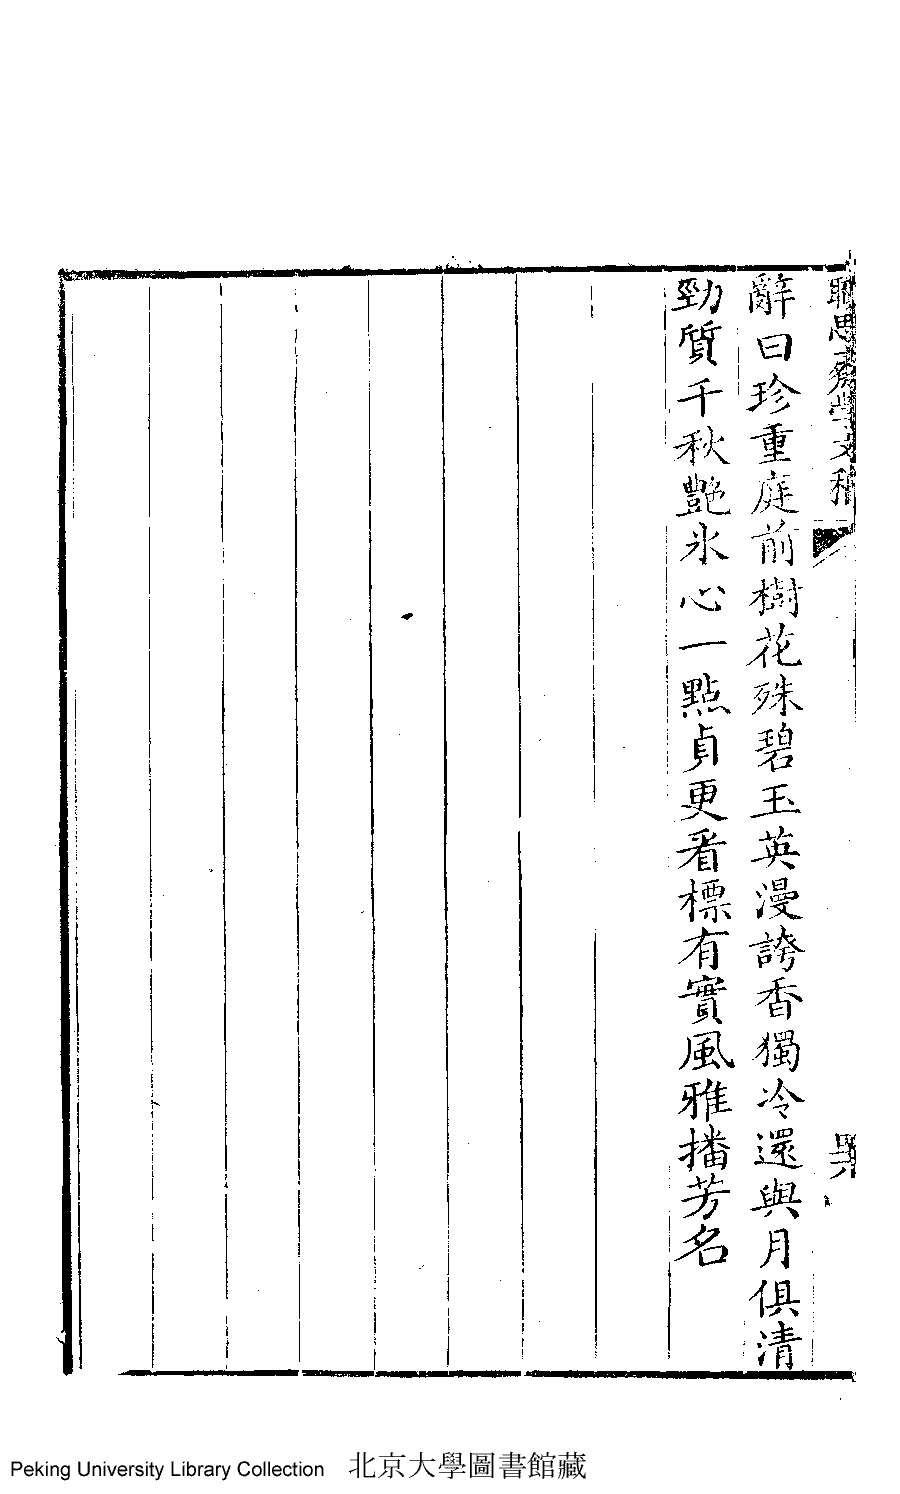 辭曰珍重庭前樹花殊碧玉英漫誇香獨冷還與月俱清
勁質千秋艷氷心一點貞更看標有實風雅播芳名
思齋學文稿
Peking University Library Collection 北京大學圖書館藏